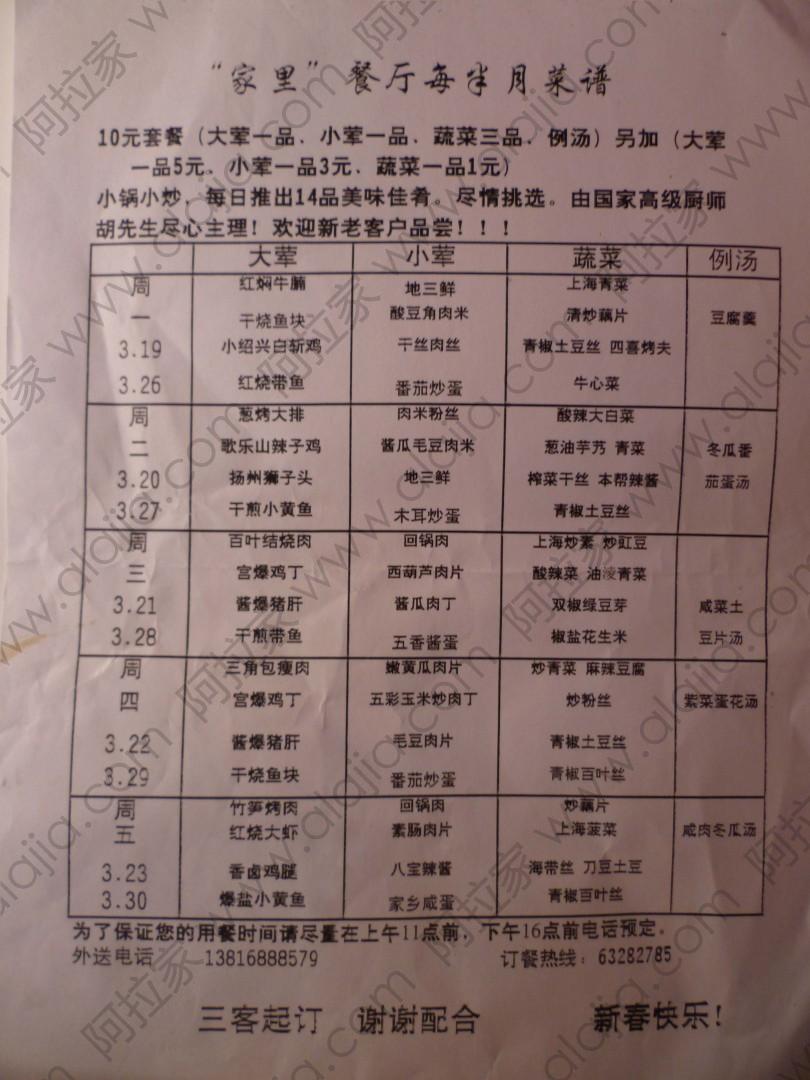 “家里”餐厅每半月菜谱
10元套餐（大荤一品、小荤一品、蔬菜三品、例汤）另加（大荤
一品5元、小荤一品3元、蔬菜一品1元）
小锅小炒，每日推出14品美味佳肴。尽情挑选。由国家高级厨师
胡先生尽心主理！欢迎新老客户品尝！！！
大荤 小荤 蔬菜 例汤
周 红焖牛腩 地三鲜 上海青菜
一 干烧鱼块 酸豆角肉米 清炒藕片 豆腐羹
3.19 小绍兴白斩鸡 干丝肉丝 青椒土豆丝 四喜烤夫
3.26 红烧带鱼 番茄炒蛋 牛心菜
周 葱烤大排 肉米粉丝 酸辣大白菜
二 歌乐山辣子鸡 酱瓜毛豆肉米 葱油芋艿 青菜 冬瓜番
3.20 扬州狮子头 地三鲜 榨菜干丝 本帮辣酱 茄蛋汤
3.27 干煎小黄鱼 木耳炒蛋 青椒土豆丝
周 百叶结烧肉 回锅肉 上海炒素 炒豇豆
三 宫爆鸡丁 西葫芦肉片 酸辣菜 油淩青菜
3.21 酱爆猪肝 酱瓜肉丁 双椒绿豆芽 咸菜土
3.28 干煎带鱼 五香酱蛋 椒盐花生米 豆片汤
周 三角包瘦肉 嫩黄瓜肉片 炒青菜 麻辣豆腐
四 宫爆鸡丁 五彩玉米炒肉丁 炒粉丝 紫菜蛋花汤
3.22 酱爆猪肝 毛豆肉片 青椒土豆丝
3.29 干烧鱼块 番茄炒蛋 青椒百叶丝
周 竹笋烤肉 回锅肉 炒藕片
五 红烧大虾 素肠肉片 上海菠菜 咸肉冬瓜汤
3.23 香卤鸡腿 八宝辣酱 海带丝 刀豆土豆
3.30 爆盐小黄鱼 家乡咸蛋 青椒百叶丝
为了保证您的用餐时间请尽量在上午11点前，下午16点前电话预定。
外送电话 13816888579 订餐热线：63282785
三客起订 谢谢配合 新春快乐！
阿拉家 www.alajia.com